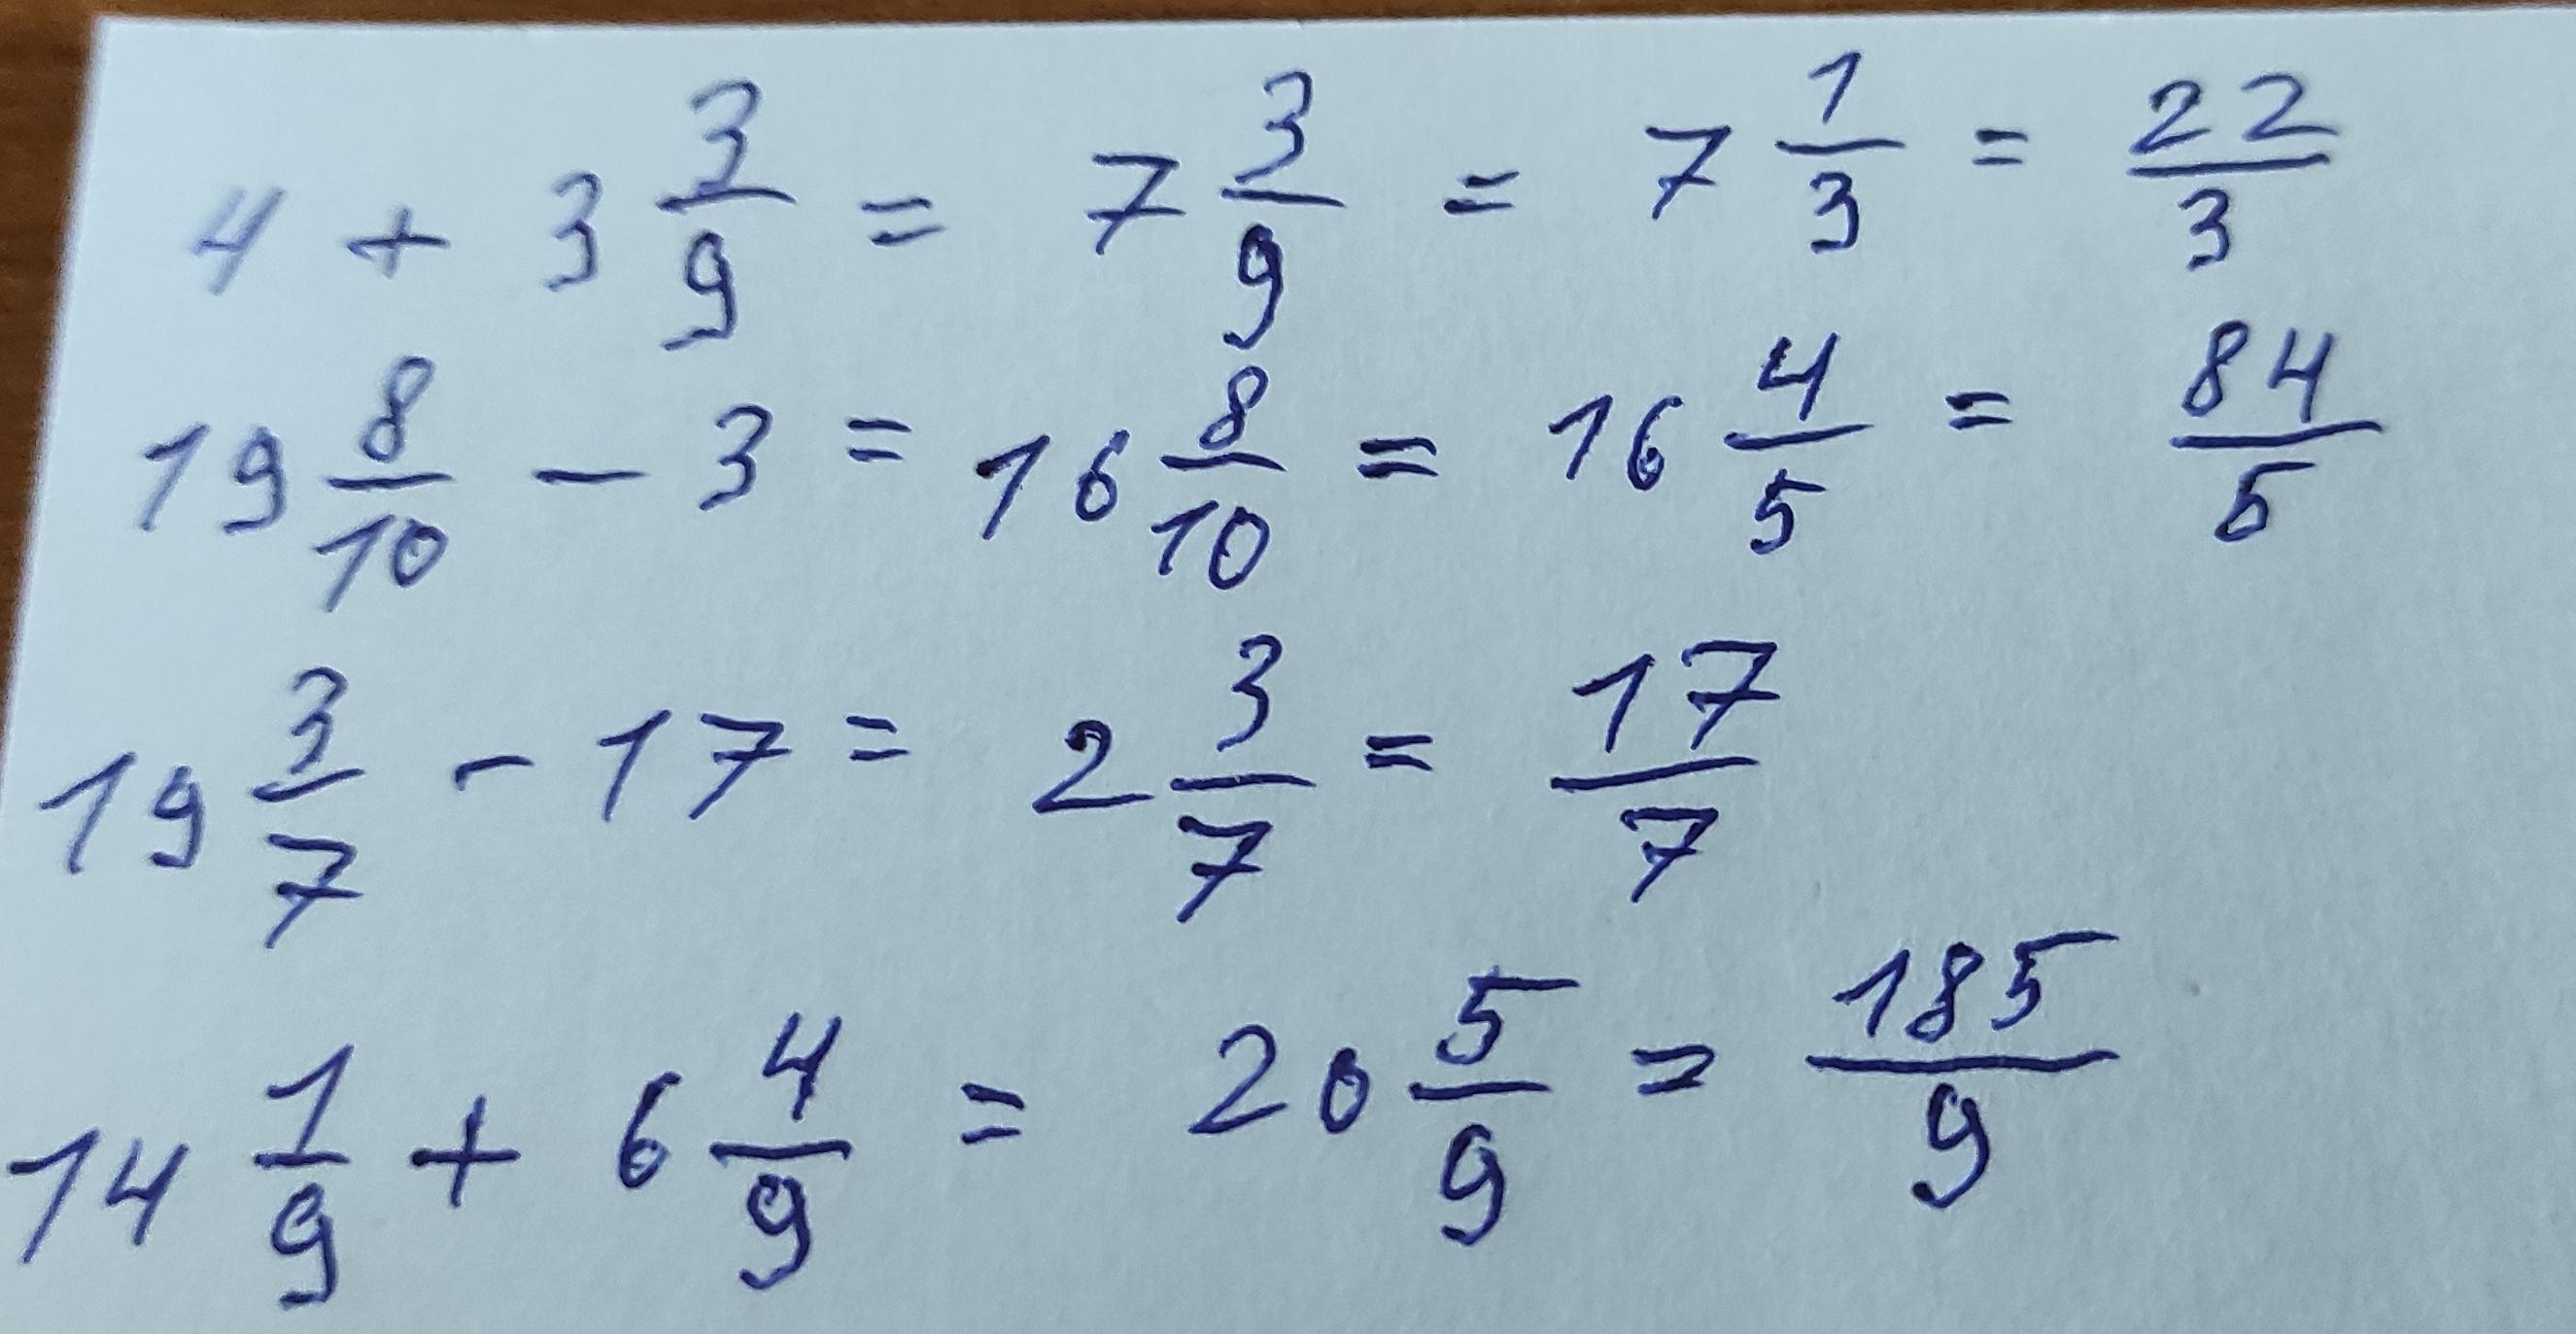 4 + 3 3/9 = 7 3/9 = 7 1/3 = 22/3
19 8/10 - 3 = 16 8/10 = 16 4/5 = 84/5
19 3/7 - 17 = 2 3/7 = 17/7
14 1/9 + 6 4/9 = 20 5/9 = 185/9